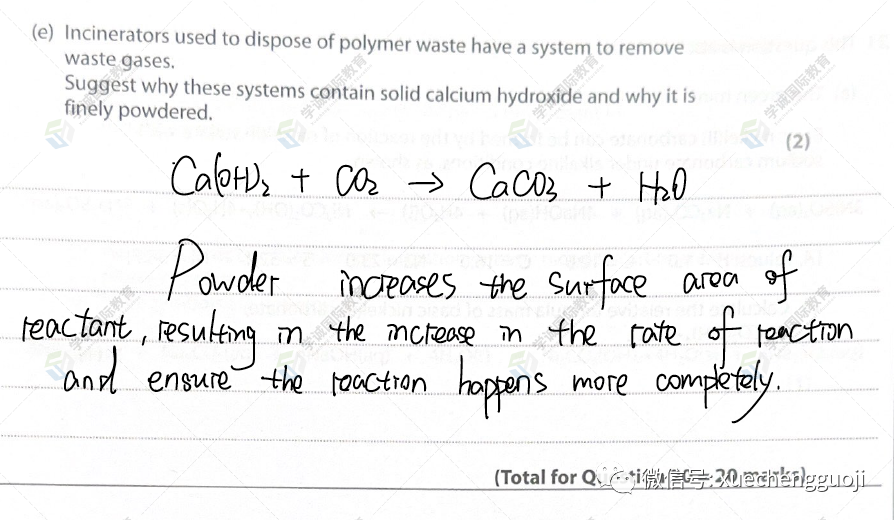 (e) Incinerators used to dispose of polymer waste have a system to remove
waste gases.
Suggest why these systems contain solid calcium hydroxide and why it is
finely powdered.
(2)
Ca(OH)₂ + CO₂ → CaCO₃ + H₂O
Powder increases the surface area of
reactant, resulting in the increase in the rate of reaction
and ensure the reaction happens more completely.
(Total for Q 20 marks)
微信号: xuechengguoji
学诚国际教育